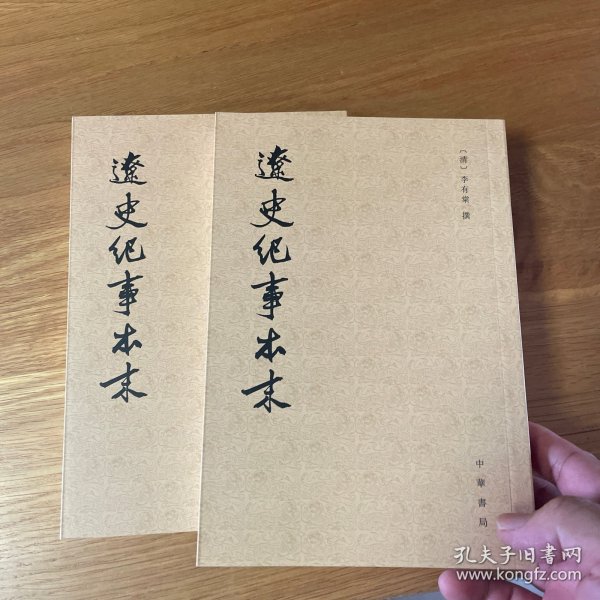 遼史紀事本末
遼史紀事本末
〔清〕李有棠 撰
中華書局
孔夫子旧書网
www.kongfz.com